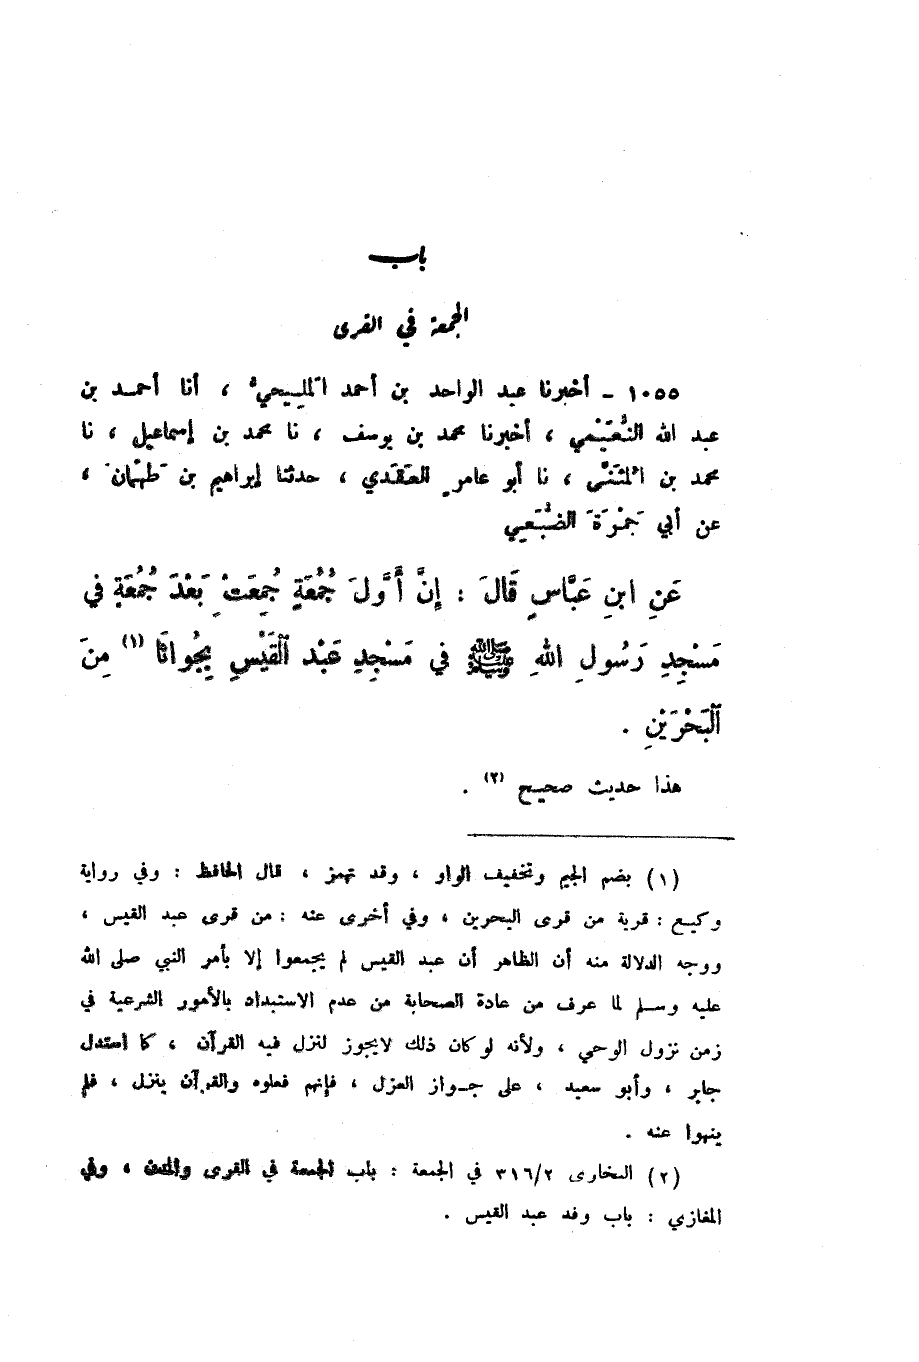 باب
الجمعة في القرى
١٠٥٥ - أخبرنا عبد الواحد بن أحمد المَلِيحيُّ ، أنا أحمد بن
عبد الله النُّعَيْمي ، أخبرنا محمد بن يوسف ، نا محمد بن إسماعيل ، نا
محمد بن المُثَنَّى ، نا أبو عامرٍ العَقَدي ، حدثنا إبراهيم بن طَهْمَان ،
عن أبي جَمْرَةَ الضُّبَعي
عَنِ ابنِ عَبَّاسٍ قَالَ : إنَّ أَوَّلَ جُمُعَةٍ جُمِعَتْ بَعْدَ جُمُعَةٍ في
مَسْجِدِ رَسُولِ اللهِ ﷺ في مَسْجِدِ عَبْدِ الْقَيْسِ بِجُواثَا (١) مِنَ
الْبَحْرَيْنِ .
هذا حديث صحيح (٢) .
(١) بضم الجيم وتخفيف الواو ، وقد تهمز ، قال الحافظ : وفي رواية
وكيع : قرية من قرى البحرين ، وفي أخرى عنه : من قرى عبد القيس ،
ووجه الدلالة منه أن الظاهر أن عبد القيس لم يجمعوا إلا بأمر النبي صلى الله
عليه وسلم لما عرف من عادة الصحابة من عدم الاستبداد بالأمور الشرعية في
زمن نزول الوحي ، ولأنه لو كان ذلك لايجوز لنزل فيه القرآن ، كما استدل
جابر ، وأبو سعيد ، على جواز العزل ، فإنهم فعلوه والقرآن ينزل ، فلم
ينهوا عنه .
(٢) البخارى ٣١٦/٢ في الجمعة : باب الجمعة في القرى والمدن ، وفي
المغازي : باب وفد عبد القيس .